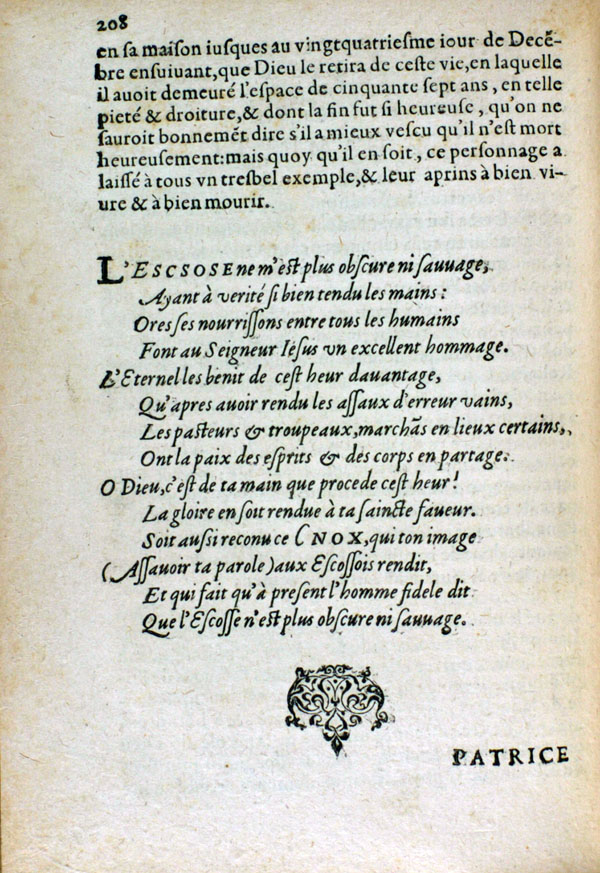 208
en sa maison iusques au vingtquatriesme iour de Decẽ-
bre ensuiuant, que Dieu le retira de ceste vie, en laquelle
il auoit demeuré l'espace de cinquante sept ans, en telle
pieté & droiture, & dont la fin fut si heureuse, qu'on ne
sauroit bonnemẽt dire s'il a mieux vescu qu'il n'est mort
heureusement: mais quoy qu'il en soit, ce personnage a
laissé à tous vn tresbel exemple, & leur aprins à bien vi-
ure & à bien mourir.
L'ESCSOSE ne m'est plus obscure ni sauuage,
Ayant à verité si bien tendu les mains:
Ores ses nourrissons entre tous les humains
Font au Seigneur Iésus vn excellent hommage.
L'Eternel les benit de cest heur dauantage,
Qu'apres auoir rendu les assaux d'erreur vains,
Les pasteurs & troupeaux, marchãs en lieux certains,
Ont la paix des esprits & des corps en partage.
O Dieu, c'est de ta main que procede cest heur!
La gloire en soit rendue à ta saincte faueur.
Soit aussi reconu ce CNOX, qui ton image
(Assauoir ta parole) aux Escossois rendit,
Et qui fait qu'à present l'homme fidele dit
Que l'Escosse n'est plus obscure ni sauuage.
PATRICE